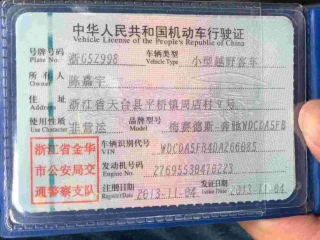 中华人民共和国机动车行驶证
Vehicle License of the People's Republic of China
号牌号码 浙G5Z998 车辆类型 小型越野客车
Plate No. Vehicle Type
所有人 陈嘉宇
Owner
住址 浙江省天台县平桥镇周店村9号
Address
使用性质 非营运 品牌型号 梅赛德斯-奔驰WDCDA5FB
Use Character Model
浙江省金华
市公安局交
通警察支队
车辆识别代号 WDCDA5FB4DA266085
VIN
发动机号码 27695530470223
Engine No.
注册日期 2013-11-04 发证日期 2013-11-04
Register Date Issue Date